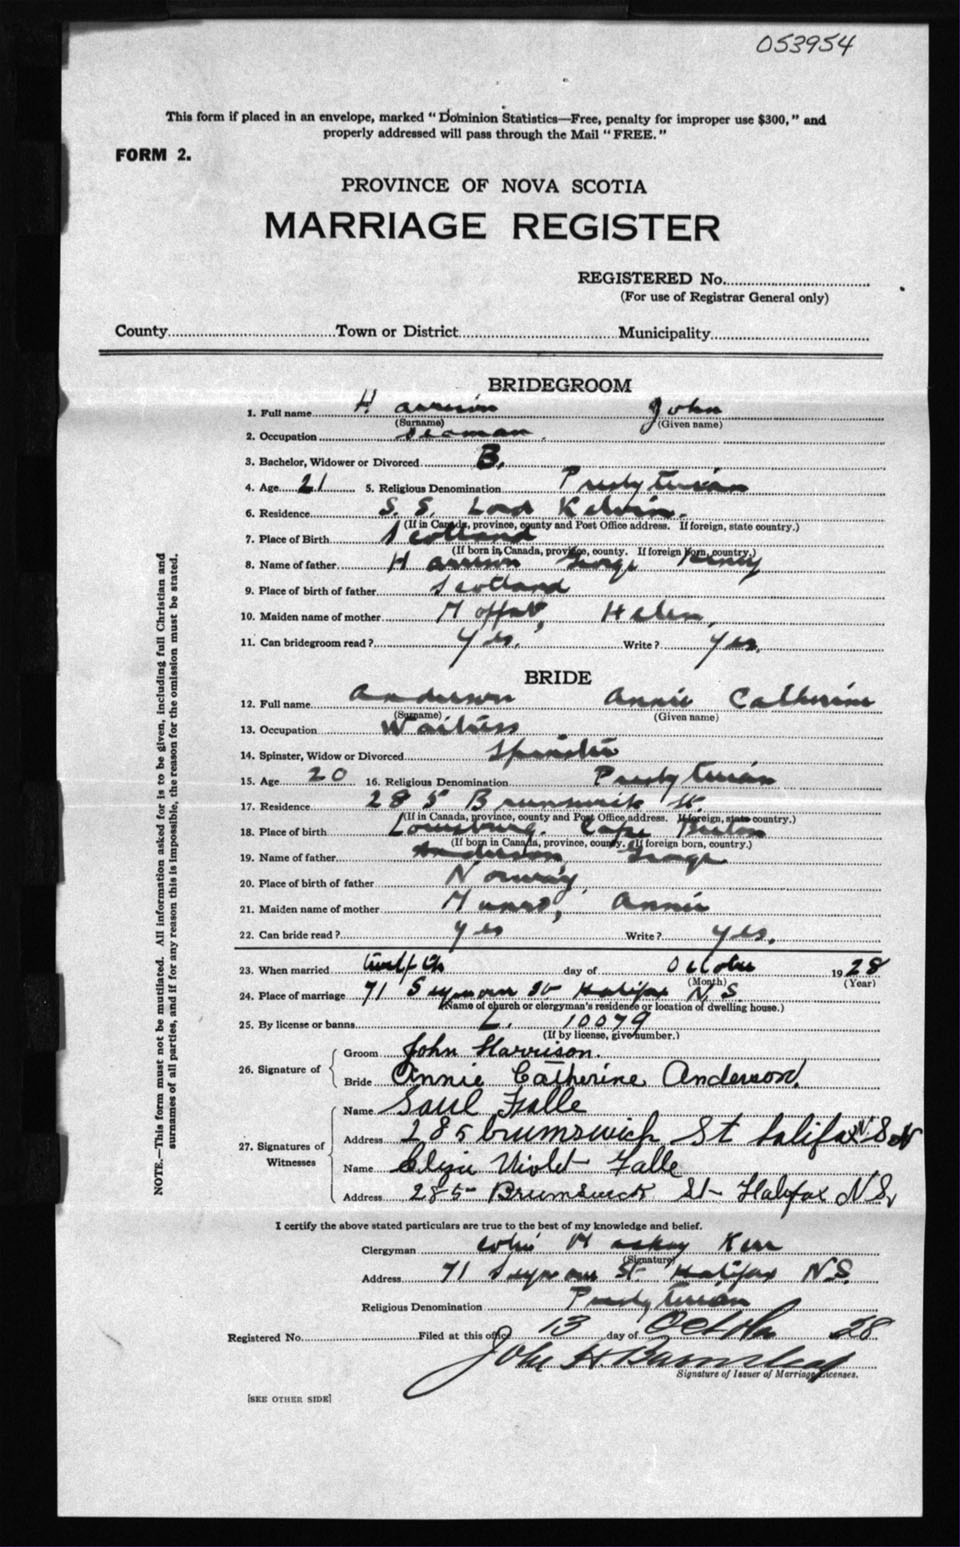 053954
This form if placed in an envelope, marked "Dominion Statistics—Free, penalty for improper use $300," and
properly addressed will pass through the Mail "FREE."
FORM 2.
PROVINCE OF NOVA SCOTIA
MARRIAGE REGISTER
REGISTERED No.
(For use of Registrar General only)
County Town or District Municipality
BRIDEGROOM
1. Full name Harrison John
(Surname) (Given name)
2. Occupation Seaman.
3. Bachelor, Widower or Divorced B.
4. Age 21 5. Religious Denomination Presbyterian
6. Residence S. S. Lord Kelvin.
(If in Canada, province, county and Post Office address. If foreign, state country.)
7. Place of Birth Scotland
(If born in Canada, province, county. If foreign born, country.)
8. Name of father Harrison George Henry
9. Place of birth of father Scotland
10. Maiden name of mother Moffat, Helen,
11. Can bridegroom read? Yes. Write? Yes.
BRIDE
12. Full name Anderson Annie Catherine
(Surname) (Given name)
13. Occupation Waitress
14. Spinster, Widow or Divorced Spinster
15. Age 20 16. Religious Denomination Presbyterian
17. Residence 285 Brunswick St.
(If in Canada, province, county and Post Office address. If foreign, state country.)
18. Place of birth Louisburg. Cape Breton
(If born in Canada, province, county. If foreign born, country.)
19. Name of father Anderson, George
20. Place of birth of father Norway
21. Maiden name of mother Munro, Annie
22. Can bride read? Yes Write? Yes.
23. When married twelfth day of October 1928
(Month) (Year)
24. Place of marriage 71 Seymour St Halifax N.S.
(Name of church or clergyman's residence or location of dwelling house.)
25. By license or banns L. 10079
(If by license, give number.)
26. Signature of Groom John Harrison.
Bride Annie Catherine Anderson.
27. Signatures of Witnesses Name Saul Falle
Address 285 brumswich St halifax N.S
Name Violet Falle
Address 285 Brumsweck St Halifax NS,
I certify the above stated particulars are true to the best of my knowledge and belief.
Clergyman Colin Mackay Kerr
(Signature)
Address 71 Seymour St Halifax N.S.
Religious Denomination Presbyterian
Registered No. Filed at this office 13 day of October 28
John H. Barnstead
Signature of Issuer of Marriage Licenses.
[SEE OTHER SIDE]
NOTE.—This form must not be mutilated. All information asked for is to be given, including full Christian and
surnames of all parties, and if for any reason this is impossible, the reason for the omission must be stated.